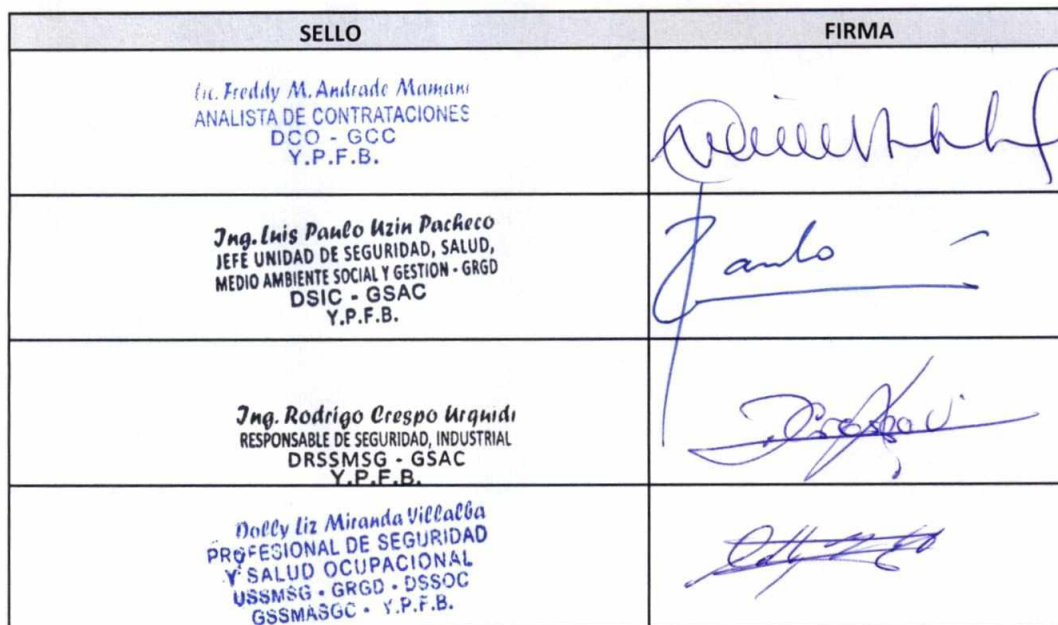 SELLO
FIRMA
Lic. Freddy M. Andrade Mamani
ANALISTA DE CONTRATACIONES
DCO - GCC
Y.P.F.B.
Ing. Luis Paulo Uzin Pacheco
JEFE UNIDAD DE SEGURIDAD, SALUD,
MEDIO AMBIENTE SOCIAL Y GESTION - GRGD
DSIC - GSAC
Y.P.F.B.
Paulo
Ing. Rodrigo Crespo Urquidi
RESPONSABLE DE SEGURIDAD, INDUSTRIAL
DRSSMSG - GSAC
Y.P.F.B.
Dolly Liz Miranda Villalba
PROFESIONAL DE SEGURIDAD
Y SALUD OCUPACIONAL
USSMSG - GRGD - DSSOC
GSSMASGC - Y.P.F.B.